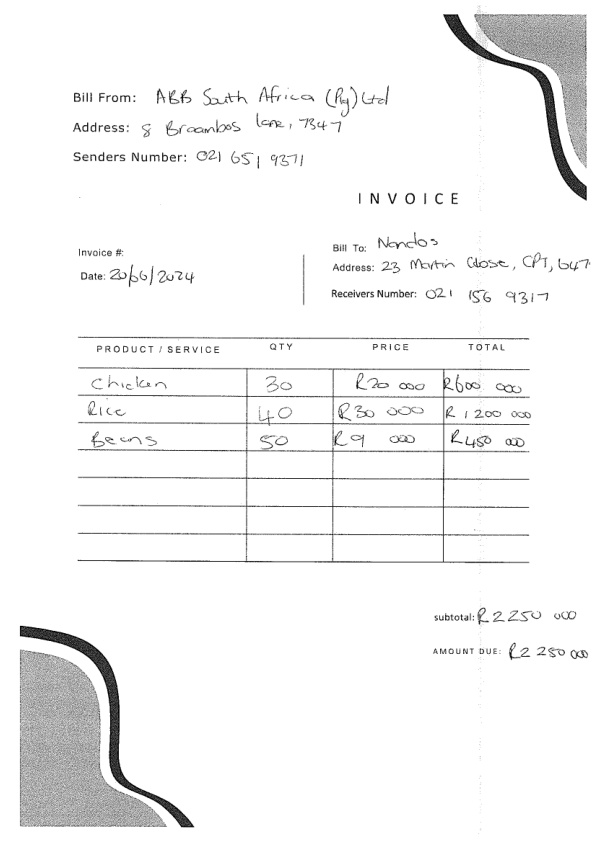 Bill From: ABB South Africa (Pty) Ltd
Address: 8 Braambos lane, 7347
Senders Number: 021 651 9371
INVOICE
Invoice #:
Date: 20/06/2024
Bill To: Nandos
Address: 23 Martin Close, CPT, 647
Receivers Number: 021 156 9317
PRODUCT / SERVICE QTY PRICE TOTAL
Chicken 30 R20 000 R600 000
Rice 40 R30 000 R1200 000
Beans 50 R9 000 R450 000
subtotal: R2250 000
AMOUNT DUE: R2 250 000